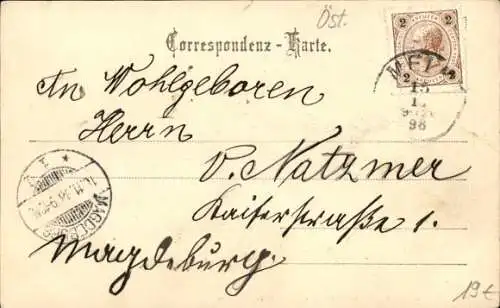 Öst.
Correspondenz - Karte.
2 2
MEL
15
98
An Wohlgeboren
Herrn
v. Natzmer
Kaiserstraße 1.
Magdeburg
MAGDEBURG
19€